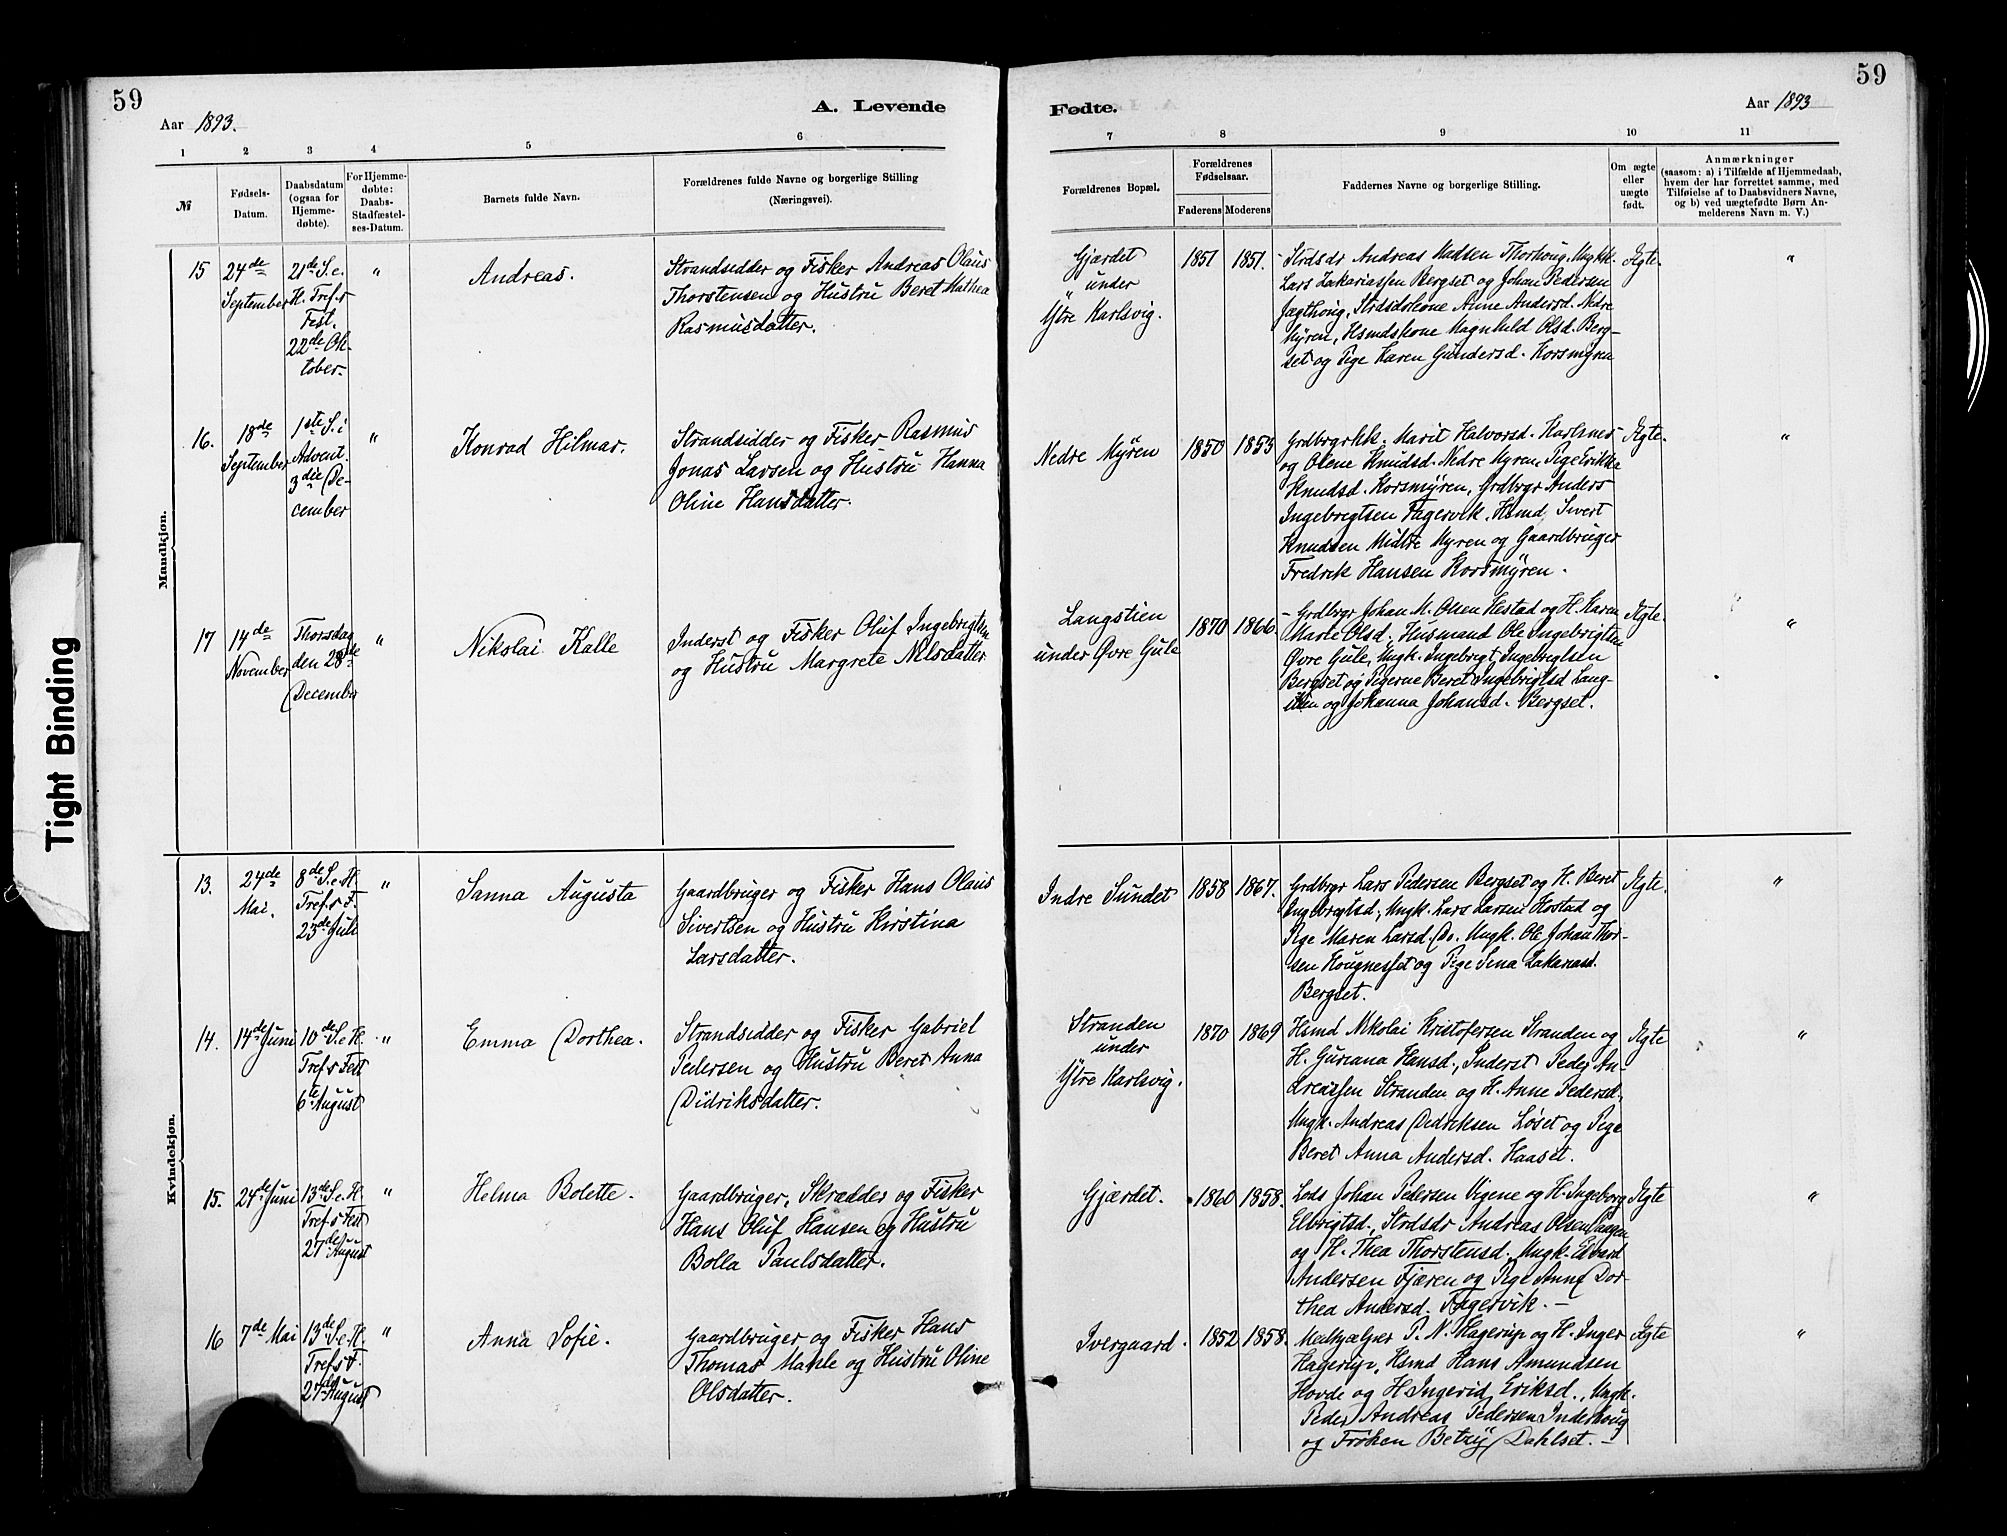 59
Aar 1893.
A. Levende
1
2
3
4
5
6
№
Fødsels-
Datum.
Daabsdatum
(ogsaa for
Hjemme-
døbte).
For Hjemme-
døbte:
Daabs-
Stadfæstel-
ses-Datum.
Barnets fulde Navn.
Forældrenes fulde Navne og borgerlige Stilling
(Næringsvei).
Mandkjøn.
15
24de
September
21de S. e.
H. Tref.s
Fest.
22de Ok-
tober.
"
Andreas.
Strandsidder og Fisker Andreas Olaus
Thorstensen og Hustru Beret Mathea
Rasmusdatter.
16.
18de
September
1ste S. i
Advent.
3die De-
cember
"
Konrad Hilmar.
Strandsidder og Fisker Rasmus
Jonas Larsen og Hustru Hanna
Oline Hansdatter.
17
14de
November
Thorsdag
den 28de
December
"
Nikolai Kalle
Inderst og Fisker Oluf Ingebrigtsen
og Hustru Margrete Nilsdatter
Kvindekjøn.
13.
24de
Mai.
8de S. e. H.
Tref.s F.
23de Juli
"
Sanna Augusta
Gaardbruger og Fisker Hans Olaus
Sivertsen og Hustru Kirstina
Larsdatter.
14.
14de Juni
10de S. e. H.
Tref.s Fest
6te August
"
Emma Dorthea.
Strandsidder og Fisker Gabriel
Pedersen og Hustru Beret Anna
Didriksdatter.
15.
24de Juni
13de S. e. H.
Tref.s Fest
27de August
"
Helma Bolette.
Gaardbruger, Skrædder og Fisker
Hans Oluf Hansen og Hustru
Bolla Paulsdatter.
16
7de Mai
13de S. e. H.
Tref.s F.
27de August
"
Anna Sofie.
Gaardbruger og Fisker Hans
Thomas Mahle og Hustru Oline
Olsdatter.
Tight Binding
59
Fødte.
Aar 1893
7
8
9
10
11
Forældrenes Bopæl.
Forældrenes
Fødselsaar.
Faderens
Moderens
Faddernes Navne og borgerlige Stilling.
Om ægte
eller
uægte
født.
Anmærkninger
(saasom: a) i Tilfælde af Hjemmedaab,
hvem der har forrettet samme, med
Tilføielse af to Daabsvidners Navne,
og b) ved uægtefødte Børn An-
melderens Navn m. V.)
Gjærdet
under
Ytre Karlsvig.
1851
1851.
Strdsdr Andreas Madsen Thorhoug, Ungk.
Lars Zakariassen Bergset og Johan Pedersen
Jægthoug, Strdsdskone Anne Andersd. Nedre
Myren, Hsmdskone Magnhild Olsd. Berg-
set og Pige Karen Gundersd. Korsmyren
Ægte.
"
Nedre Myren
1850
1853
Grdbrgrkk. Marit Halvorsd. Karlsnes
og Olene Knudsd. Nedre Myren, Pige Erikka
Knudsd. Korsmyren, Grdbrgr Anders
Ingebregtsen Fagervik, Hsmd, Sivert
Knudsen Midtre Myren og Gaardbruger
Fredrik Hansen Korsmyren.
Ægte.
"
Langstien
under Øvre Gule
1870
1866.
Grdbrgr Johan M. Olsen Hestad og H. Karen
Marie Olsd. Husmand Ole Ingebrigtsen
Øvre Gule, Ungk. Ingebregt Ingebregtsen
Bergset og Pigerne Beret Ingebrigtsd Lang-
stien og Johanna Johansd. Bergset.
Ægte.
"
Indre Sundet
1858
1867.
Grdbrgr Lars Pedersen Bergset og H. Beret
Ingebregtsd, Ungk. Lars Larsen Hostad og
Pige Maren Larsd. Do. Ungk. Ole Johan Thor-
sen Hougnesset og Pige Sina Zakariasd.
Bergset.
Ægte.
"
Stranden
under
Ytre Karlsvig.
1870
1869
Hsmd Nikolai Kristofersen Stranden og
H. Guriana Hansd., Inderst Peder An-
dreassen Stranden og H. Anne Pedersd.
Ungk. Andreas Didriksen Løset og Pige
Beret Anna Andersd. Haaset.
Ægte
"
Gjærdet.
1860
1858.
Lods Johan Pedersen Vigene og H. Ingeborg
Elbrigtsd., Strdsdr Andreas Olsen
og H. Thea Thorstensd. Ungk. Edvard
Andersen Fjæren og Pige Anne Dor-
thea Andersd. Fagervik. —
Ægte
"
Ivergaard.
1852
1858.
P. N. Hagerup og H. Inger
Hagerup, Hsmd Hans Amundsen
Hovde og H. Ingerid Eriksd., Ungk.
Peder Andreas Pedersen Inderhoug
og Frøken Betzy Dahlset. —
Ægte
"